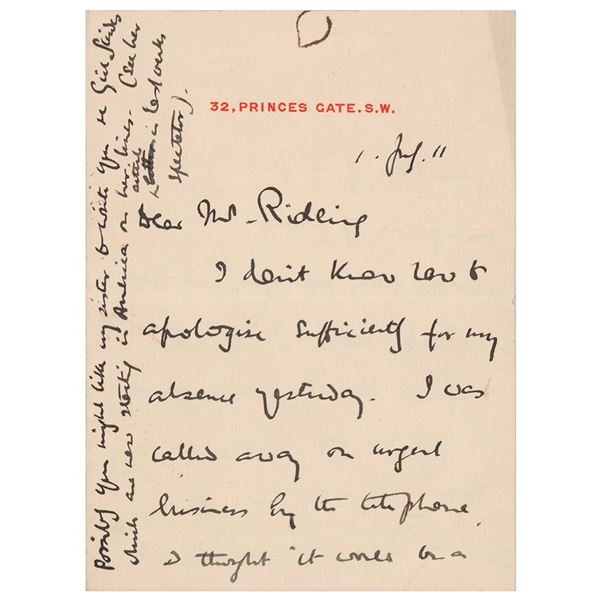 32, PRINCES GATE. S.W.
1. July. 11
Dear Mr. Rideing
I don't know how to
apologise sufficiently for my
absence yesterday. I was
called away on urgent
business by the telephone
I thought it would be a
Possibly you might like my sister to write you re Girl Guides
which are now starting in America on her lines. (See her
article in last weeks
Spectator).